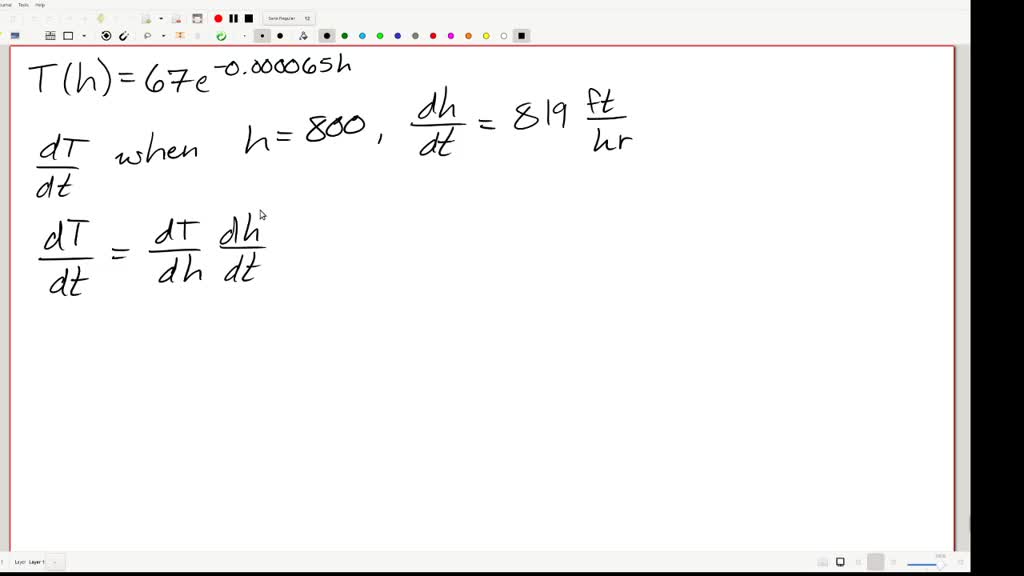 Journal Tools Help
T(h) = 67e^{-0.000065h}
dT/dt when h = 800, dh/dt = 819 ft/hr
dT/dt = dT/dh dh/dt
Layer Layer 1